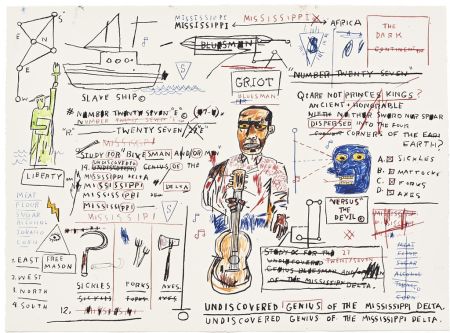 MISSISSIPPI
MISSISSIPPI
MISSISSIPPI
AFRICA
THE
DARK
CONTINENT
BLUESMAN
N
E
S
W
E
GRIOT
BLUESMAN
S
"NUMBER TWENTY SEVEN"
SLAVE SHIP©
S
Q: ARE NOT PRINCES KINGS?
ANCIENT + HONORABLE
WITH NEITHER SWORD NOR SPEAR
DISPERSED INTO THE FOUR
CORNERS OF THE EARTH
EARTH?
# NUMBER TWENTY SEVEN "E"©
NUMBER TWENTY SEVEN
"R" TWENTY SEVEN
STUDY FOR BLUESMAN AND/OR
UNDISCOVERED
19. UNDISCOVERED GENIUS OF THE
MISSISSIPPI DELTA
MISSISSIPPI DELTA
MISSISSIPPI DEL
MISSISSIPPI
MISSISSIPPI
LIBERTY
A. SICKLES
B. MATTOCKS
C. FORKS
D. AXES
"VERSUS"
THE
DEVIL©
MEAT
FLOUR
SUGAR
ALCOHOL
TOBACCO
CORN
1. EAST
FREE
MASON
2. WEST
3. NORTH
4. SOUTH
12.
SICKLES
FORKS
AXES.
SICKLES
FORKS
AXES
STUDY FOR THE 27
UNDISCOVERED TWENTYSEVEN
GENIUS BLUESMAN AND/OR
OF THE MISSISSIPPI DELTA.
MEAT
FLOUR
SUGAR
ALCOHOL
TOBACCO
CORN
UNDISCOVERED GENIUS OF THE MISSISSIPPI DELTA.
UNDISCOVERED GENIUS OF THE MISSISSIPPI DELTA.